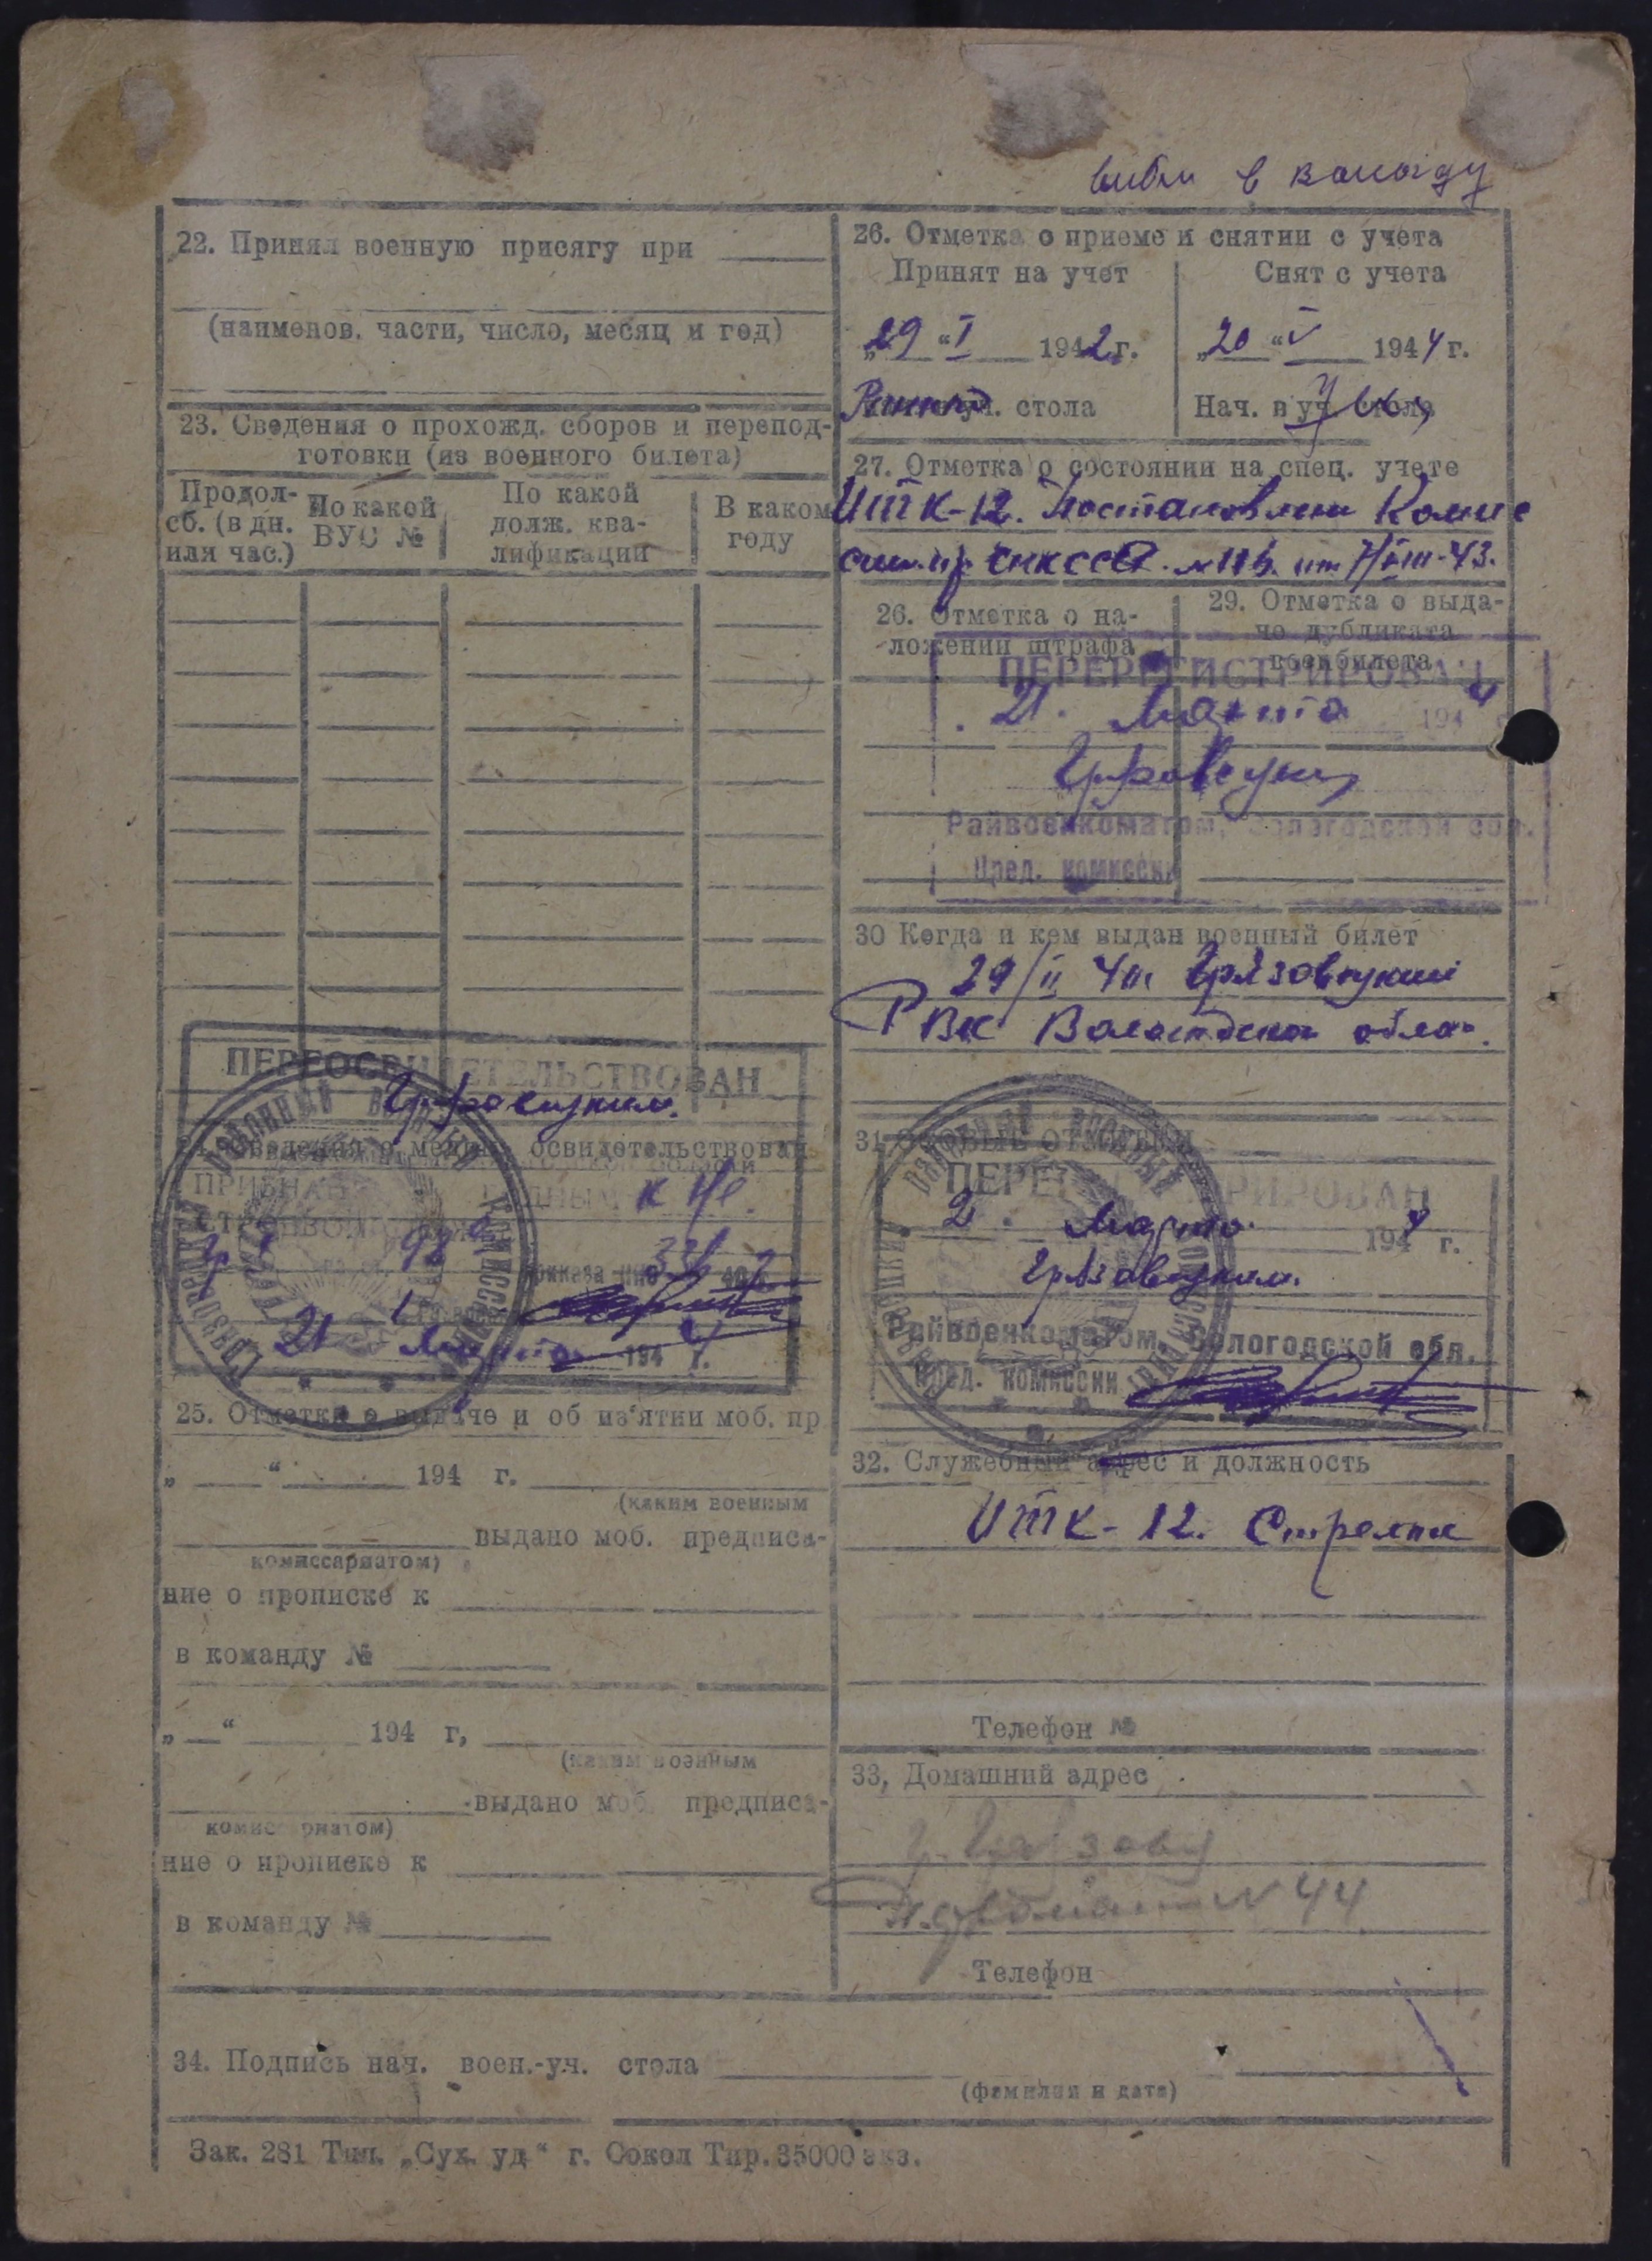 в команду
22. Принял военную присягу при
(наименов. части, число, месяц и год)
23. Сведения о прохожд. сборов и перепод-
готовки (из военного билета)
Продол-
сб. (в дн.
или час.)
По какой
ВУС №
По какой
долж. ква-
лификации
В каком
году
ПЕРЕОСВИДЕТЕЛЬСТВОВАН
24. Сведения о медиц. освидетельствован.
ПРИЗНАН
21 Марта 1944 г.
25. Отметки о выдаче и об из'ятии моб. пр
„ “ 194 г.
(каким военным
выдано моб. предписа-
комиссариатом)
ние о прописке к
в команду №
„ “ 194 г,
(каким военным
выдано моб. предписа-
комиссариатом)
ние о прописке к
в команду №
26. Отметка о приеме и снятии с учета
Принят на учет
Снят с учета
„29“ I 1942 г.
„20“ V 1944 г.
стола
Нач. в уч. стола
27. Отметка о состоянии на спец. учете
ИТК-12. Постановлен Комис
от 7/VIII-43.
26. Отметка о на-
ложении штрафа
29. Отметка о выда-
че дубликата
военбилета
ПЕРЕРЕГИСТРИРОВАН
21. Марта 1944
Райвоенкоматом, Вологодской обл.
Пред. комиссии
30 Когда и кем выдан военный билет
29/II Грязовецкий
РВК Вологодской обла.
31. Особые отметки
ПЕРЕРЕГИСТРИРОВАН
2. Марта 1944 г.
Грязовецким.
Райвоенкоматом, Вологодской обл.
Пред. комиссии
32. Служебный адрес и должность
ИТК-12. Стрелок
Телефон №
33, Домашний адрес
г. Грязовец
№ 44
Телефон
34. Подпись нач. воен.-уч. стола
(фамилия и дата)
Зак. 281 Тип. „Сух. уд“ г. Сокол Тир. 35000 экз.